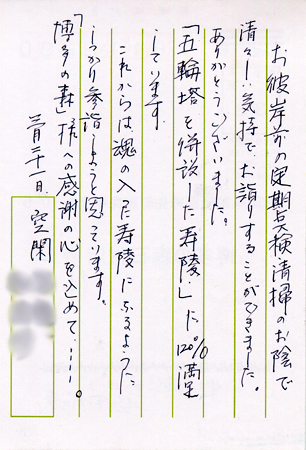 お彼岸前の定期点検清掃のお陰で
清々しい気持で、お詣りすることができました。
ありがとうございました。
「五輪塔を併設した寿陵」に120%満足
しています。
これからは、魂の入った寿陵になるように
しっかり参詣しようと思っています。
「博多の森」様への感謝の心を込めて・・・・。
三月二十一日 空閑